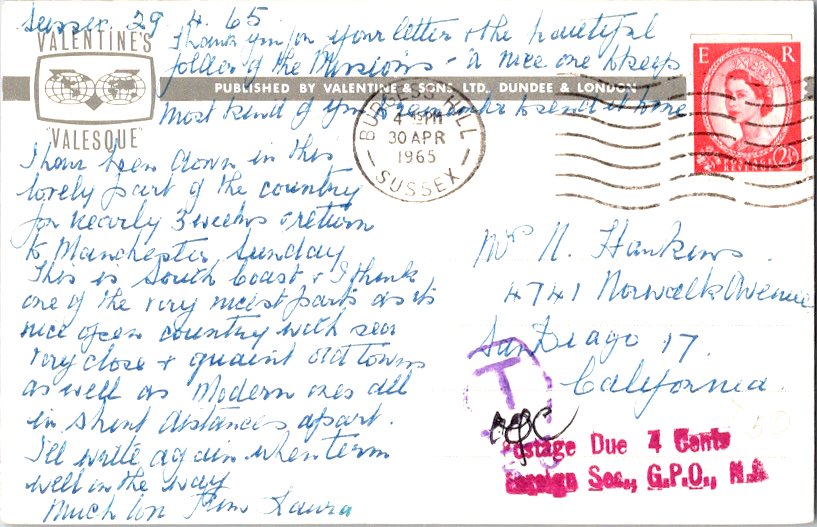 Sussex 29. 4. 65
VALENTINE'S
Thank you for your letter & the beautiful
folder of the Missions - a nice one to keep
PUBLISHED BY VALENTINE & SONS, LTD., DUNDEE & LONDON
most kind of you to send it home
"VALESQUE"
I have been down in this
lovely part of the country
for nearly 3 weeks & return
to Manchester Sunday
This is South Coast & I think
one of the very nicest parts as its
nice open country with sea
very close & quaint old towns
as well as Modern ones all
in short distances apart.
I'll write again when term
well in the way
Much love from Laura
BURGESS HILL
4 PM
30 APR
1965
SUSSEX
E R
REVENUE
Mrs N. Hankins.
4741 Norwalk Avenue
San Diago 17.
California.
T
Postage Due 4 Cents
Foreign Sec., G.P.O., N.Y.